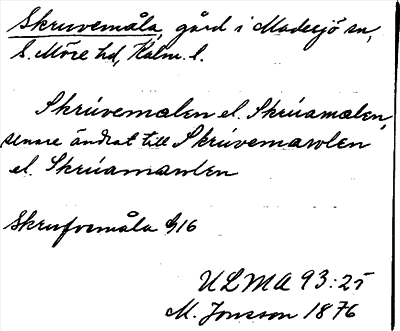 Skruvemåla, gård i Madesjö sn,
S. Möre hd, Kalm. l.
Skrúvemålen el. Skrúamålen,
senare ändrat till Skrúvemawlen
el. Skrúamawlen
Skrufvemåla
ULMA 93:25
M. Jonsson 1876